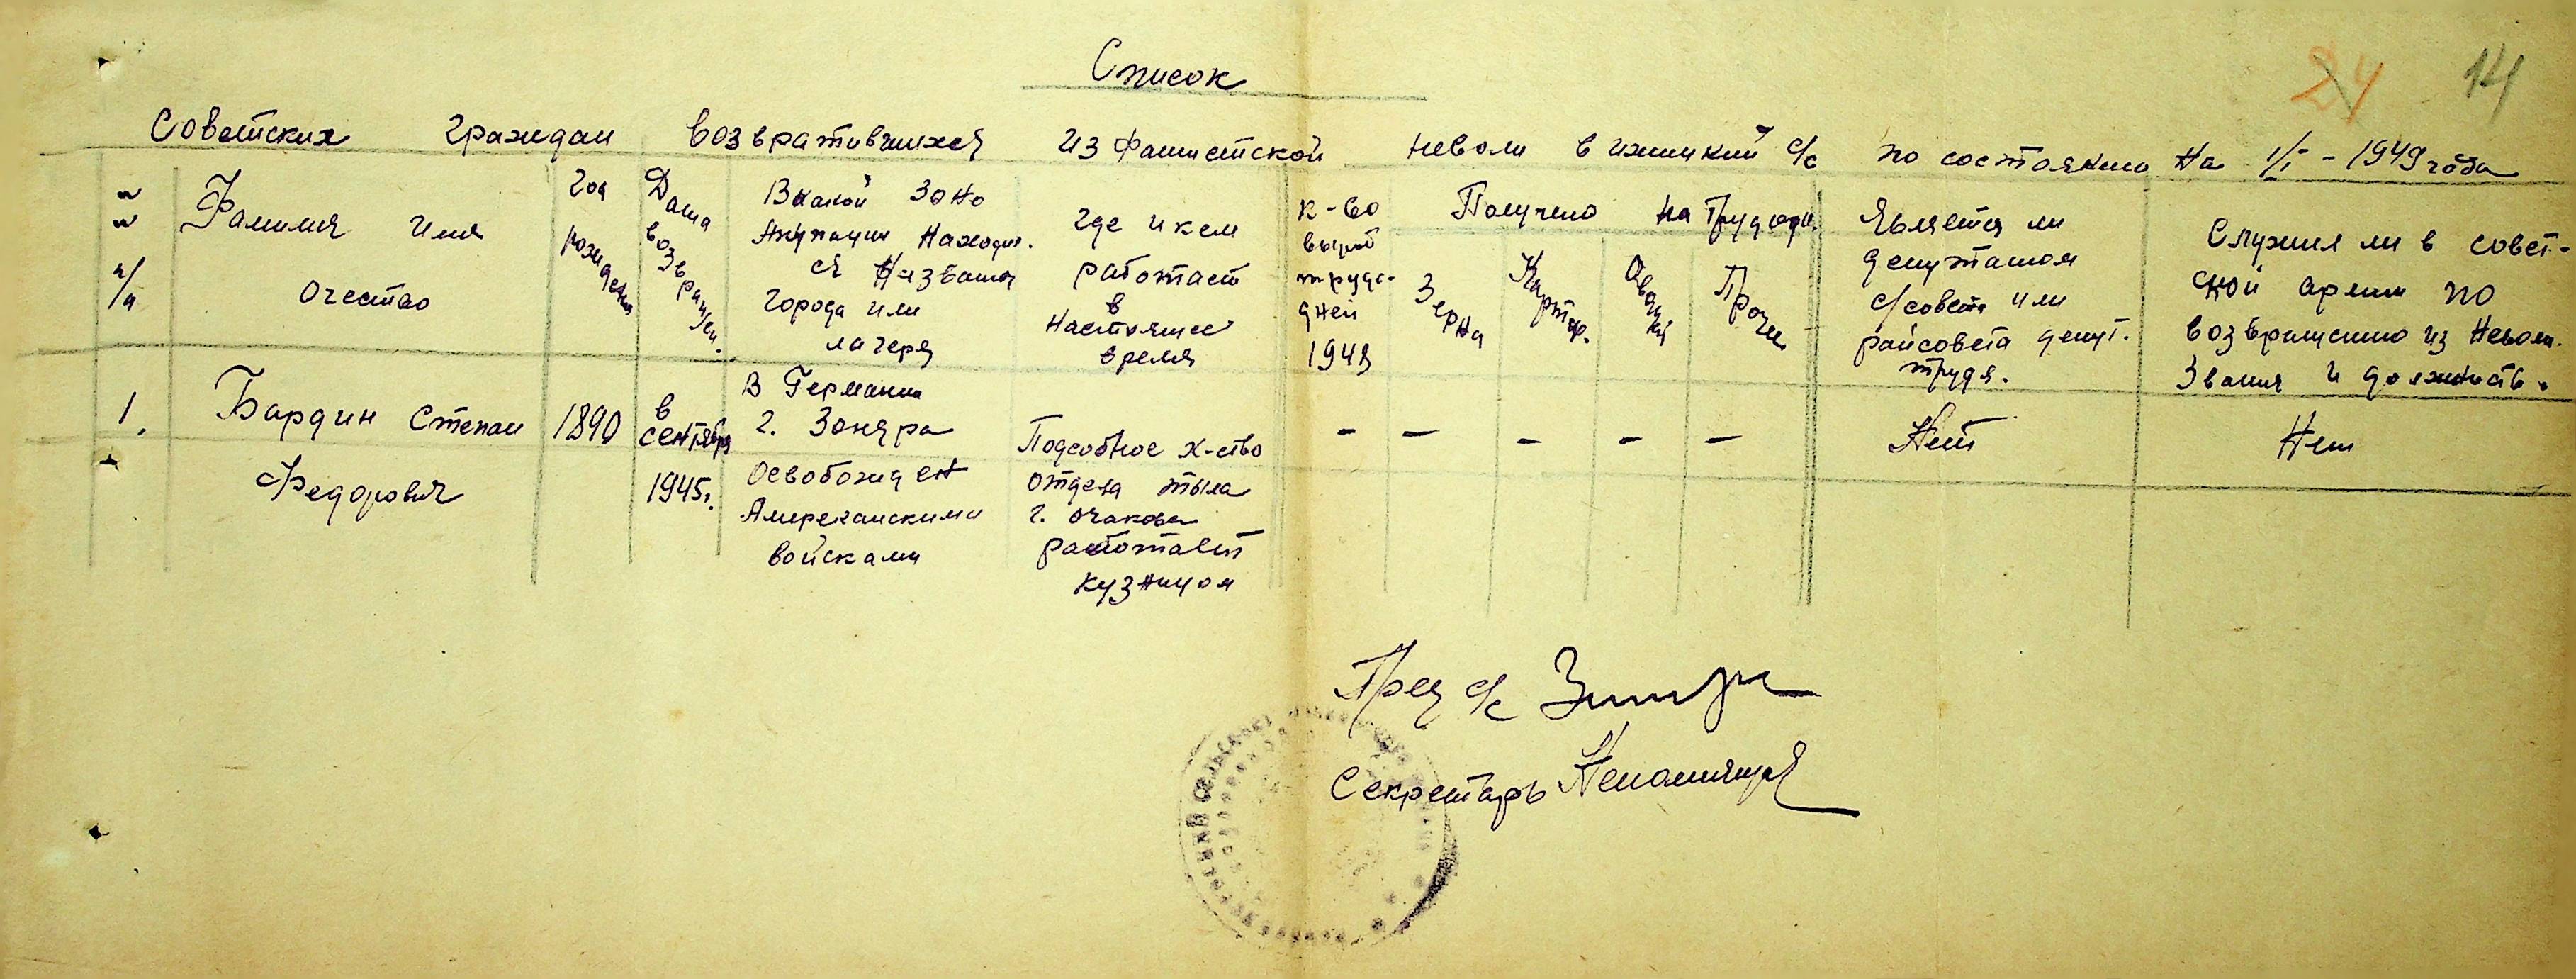 Список
24 14
Советских граждан возвратившихся из фашистской неволи в с/с по состоянию на 1/I - 1949 года
№№ п/п
Фамилия Имя
Очество
Год рождения
Дата возвращен.
В какой зоне
Акупации находил.
ся Название
города или
лагеря
Где и кем
работает
в
настоящее
время
К-во
выраб
трудо-
дней
1948
Получено на трудодн.
Зерна
Картоф.
Овощей
Прочее
Является ли
депутатом
с/совета или
райсовета депут.
труд.
Служил ли в совет-
ской армии по
возвращению из невол.
Звания и должность.
1. Бардин Степан
Федорович
1890
в
сентябре
1945г.
В Германии
г.
Освобожден
Американскими
войсками
Подсобное х-ство
отдела тыла
г. Очакова
работает
кузнецом
- - - - -
Нет
Нет
Пред с/с
Секретарь